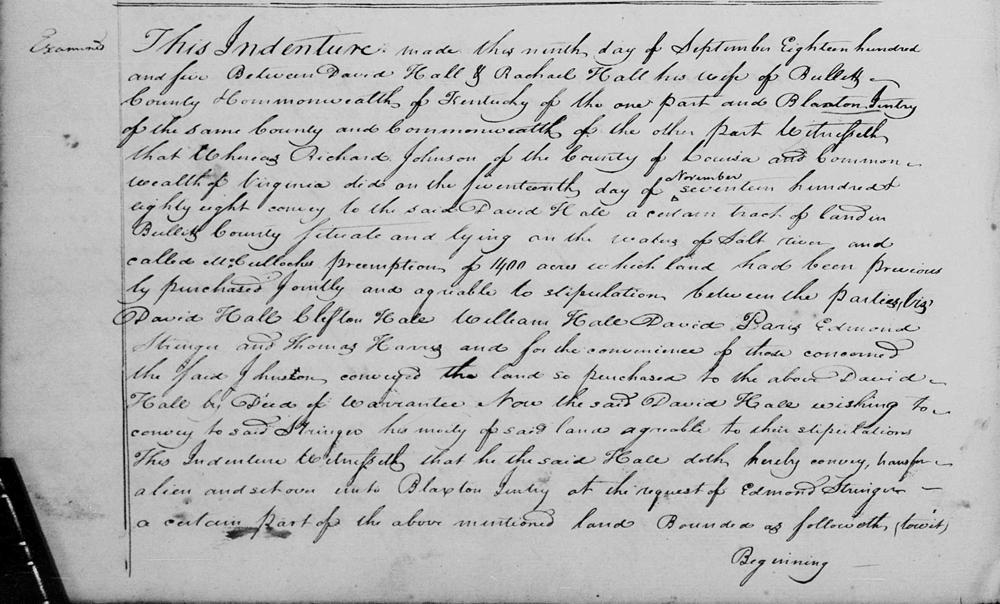 Examined
This Indenture made this ninth day of September Eighteen hundred
and five Between David Hall & Rachael Hall his wife of Bullett
County Commonwealth of Kentucky of the one part and Blaxton Intry
of the same County and Commonwealth of the other part Witnesseth
that Whereas Richard Johnson of the County of Louisa and Common-
wealth of Virginia did on the seventeenth day of November seventeen hundred &
eighty eight convey to the said David Hall a certain tract of land in
Bullett County situate and lying on the waters of Salt river and
called McCullochs preemption of 1400 acres which land had been previous
ly purchased jointly and agreable to stipulation between the parties (viz)
David Hall Clifton Hall William Hall David Paris Edmond
Stringer and Thomas Harris and for the convenience of those concerned
the said Johnston conveyed the land so purchased to the above David
Hall by Deed of Warrantee Now the said David Hall wishing to
convey to said Stringer his moity of said land agreable to their stipulations
This Indenture Witnesseth that he the said Hall doth hereby convey, transfer
alien and set over unto Blaxton Intry at the request of Edmond Stringer
a certain part of the above mentioned land Bounded as followeth (towit)
Beginning